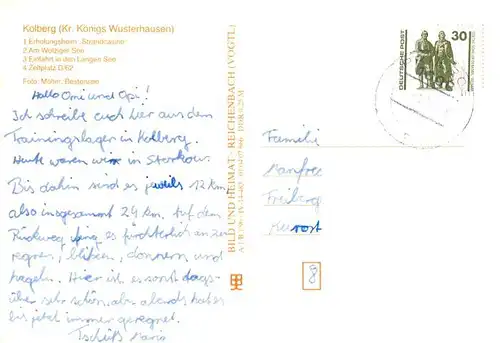 Kolberg (Kr. Königs Wusterhausen)
1 Erholungsheim Strandcasino
2 Am Wolziger See
3 Einfahrt in den Langen See
4 Zeltplatz D/62
Foto: Müller, Beeskow
Hallo Omi und Opi!
Ich schreibe euch hier aus dem
Trainingslager in Kolberg.
Heute waren wir in Storkow.
Bis dahin sind es jeweils 12 km
also insgesamt 24 km. Auf dem
Rückweg fing es fürchterlich an zu
regnen, blitzen, donnern und
hageln. Hier ist es sonst tags-
über sehr schön, aber abends hat es
bis jetzt immer geregnet.
Tschüß Mario
BILD UND HEIMAT · REICHENBACH (VOGTL)
DEUTSCHE POST
30
Familie
Manfred
Freiberg
Kurort
8